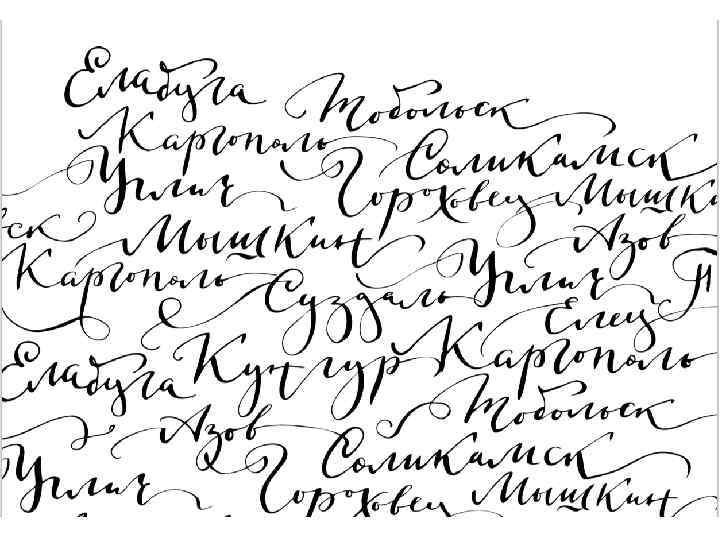 Елабуга Тобольск
Каргополь Соликамск
Углич Гороховец Мышки
ск Мышкин Азов
Каргополь Суздаль Углич Т
Елец
Елабуга Кунгур Каргополь
Азов Тобольск
Углич Соликамск
Гороховец Мышкин